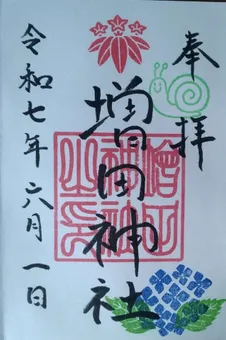 奉拝
増田神社
令和七年六月一日